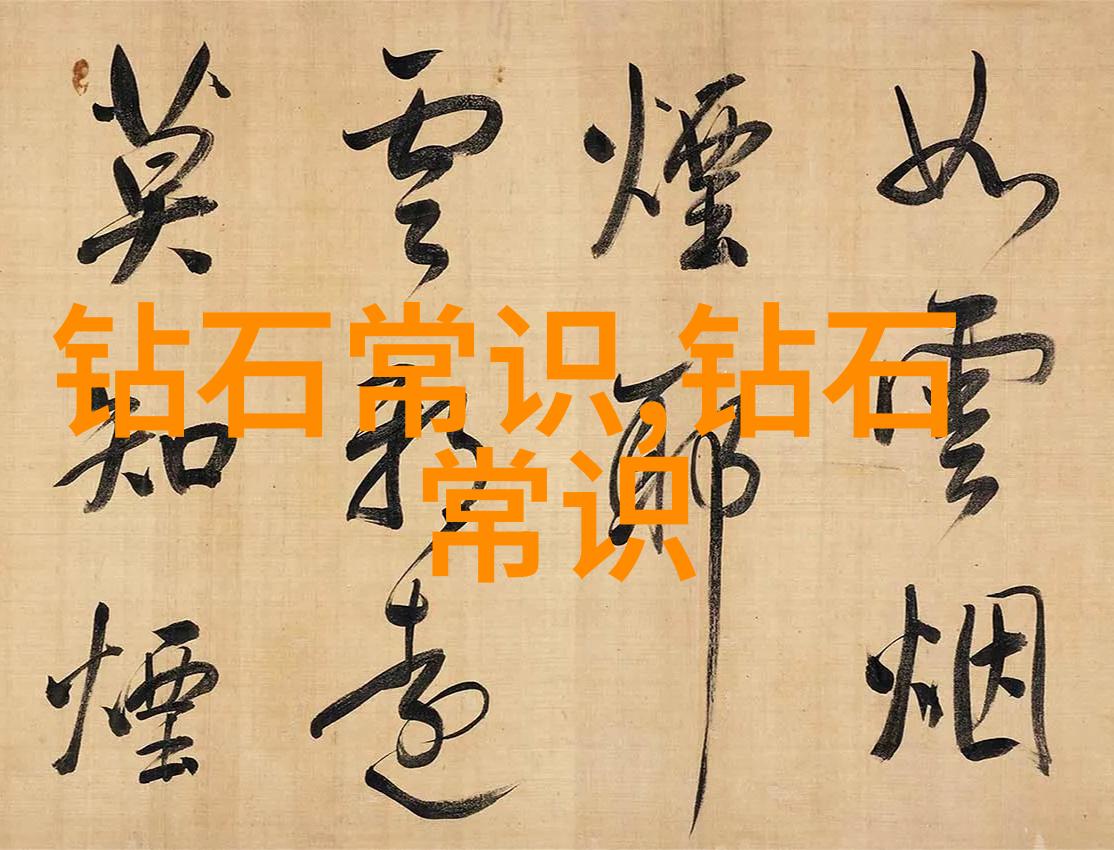 如雲烟
煙
云遠
莫知煙
钻石常识,钻石
常识